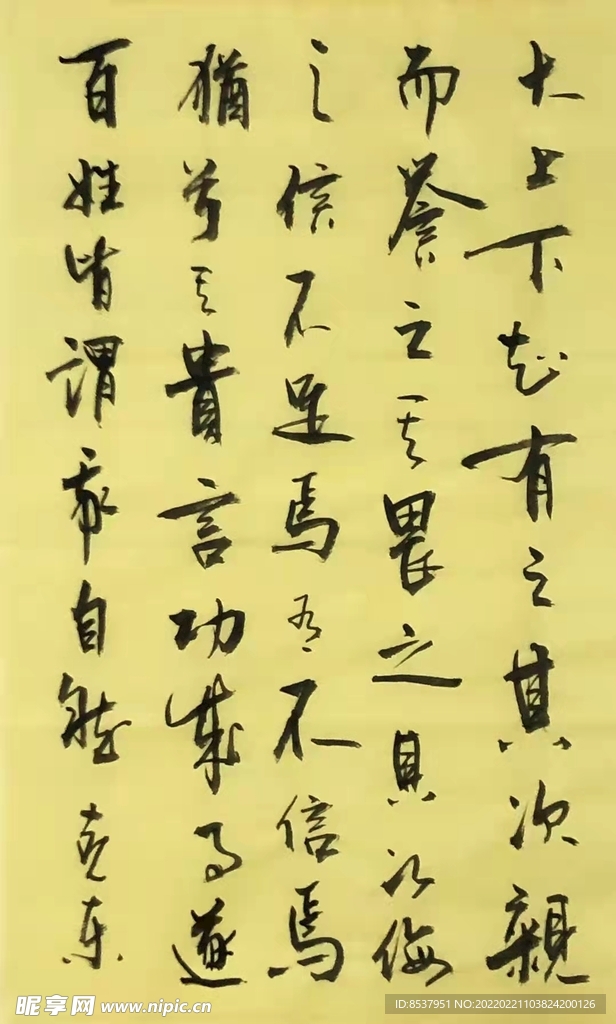 大上下知有之其次親
而誉之其畏之其次侮
之信不足焉有不信焉
猶兮其貴言功成事遂
百姓皆謂我自然 克东
昵享网 www.nipic.cn
ID:8537951 NO:20220221103824200126